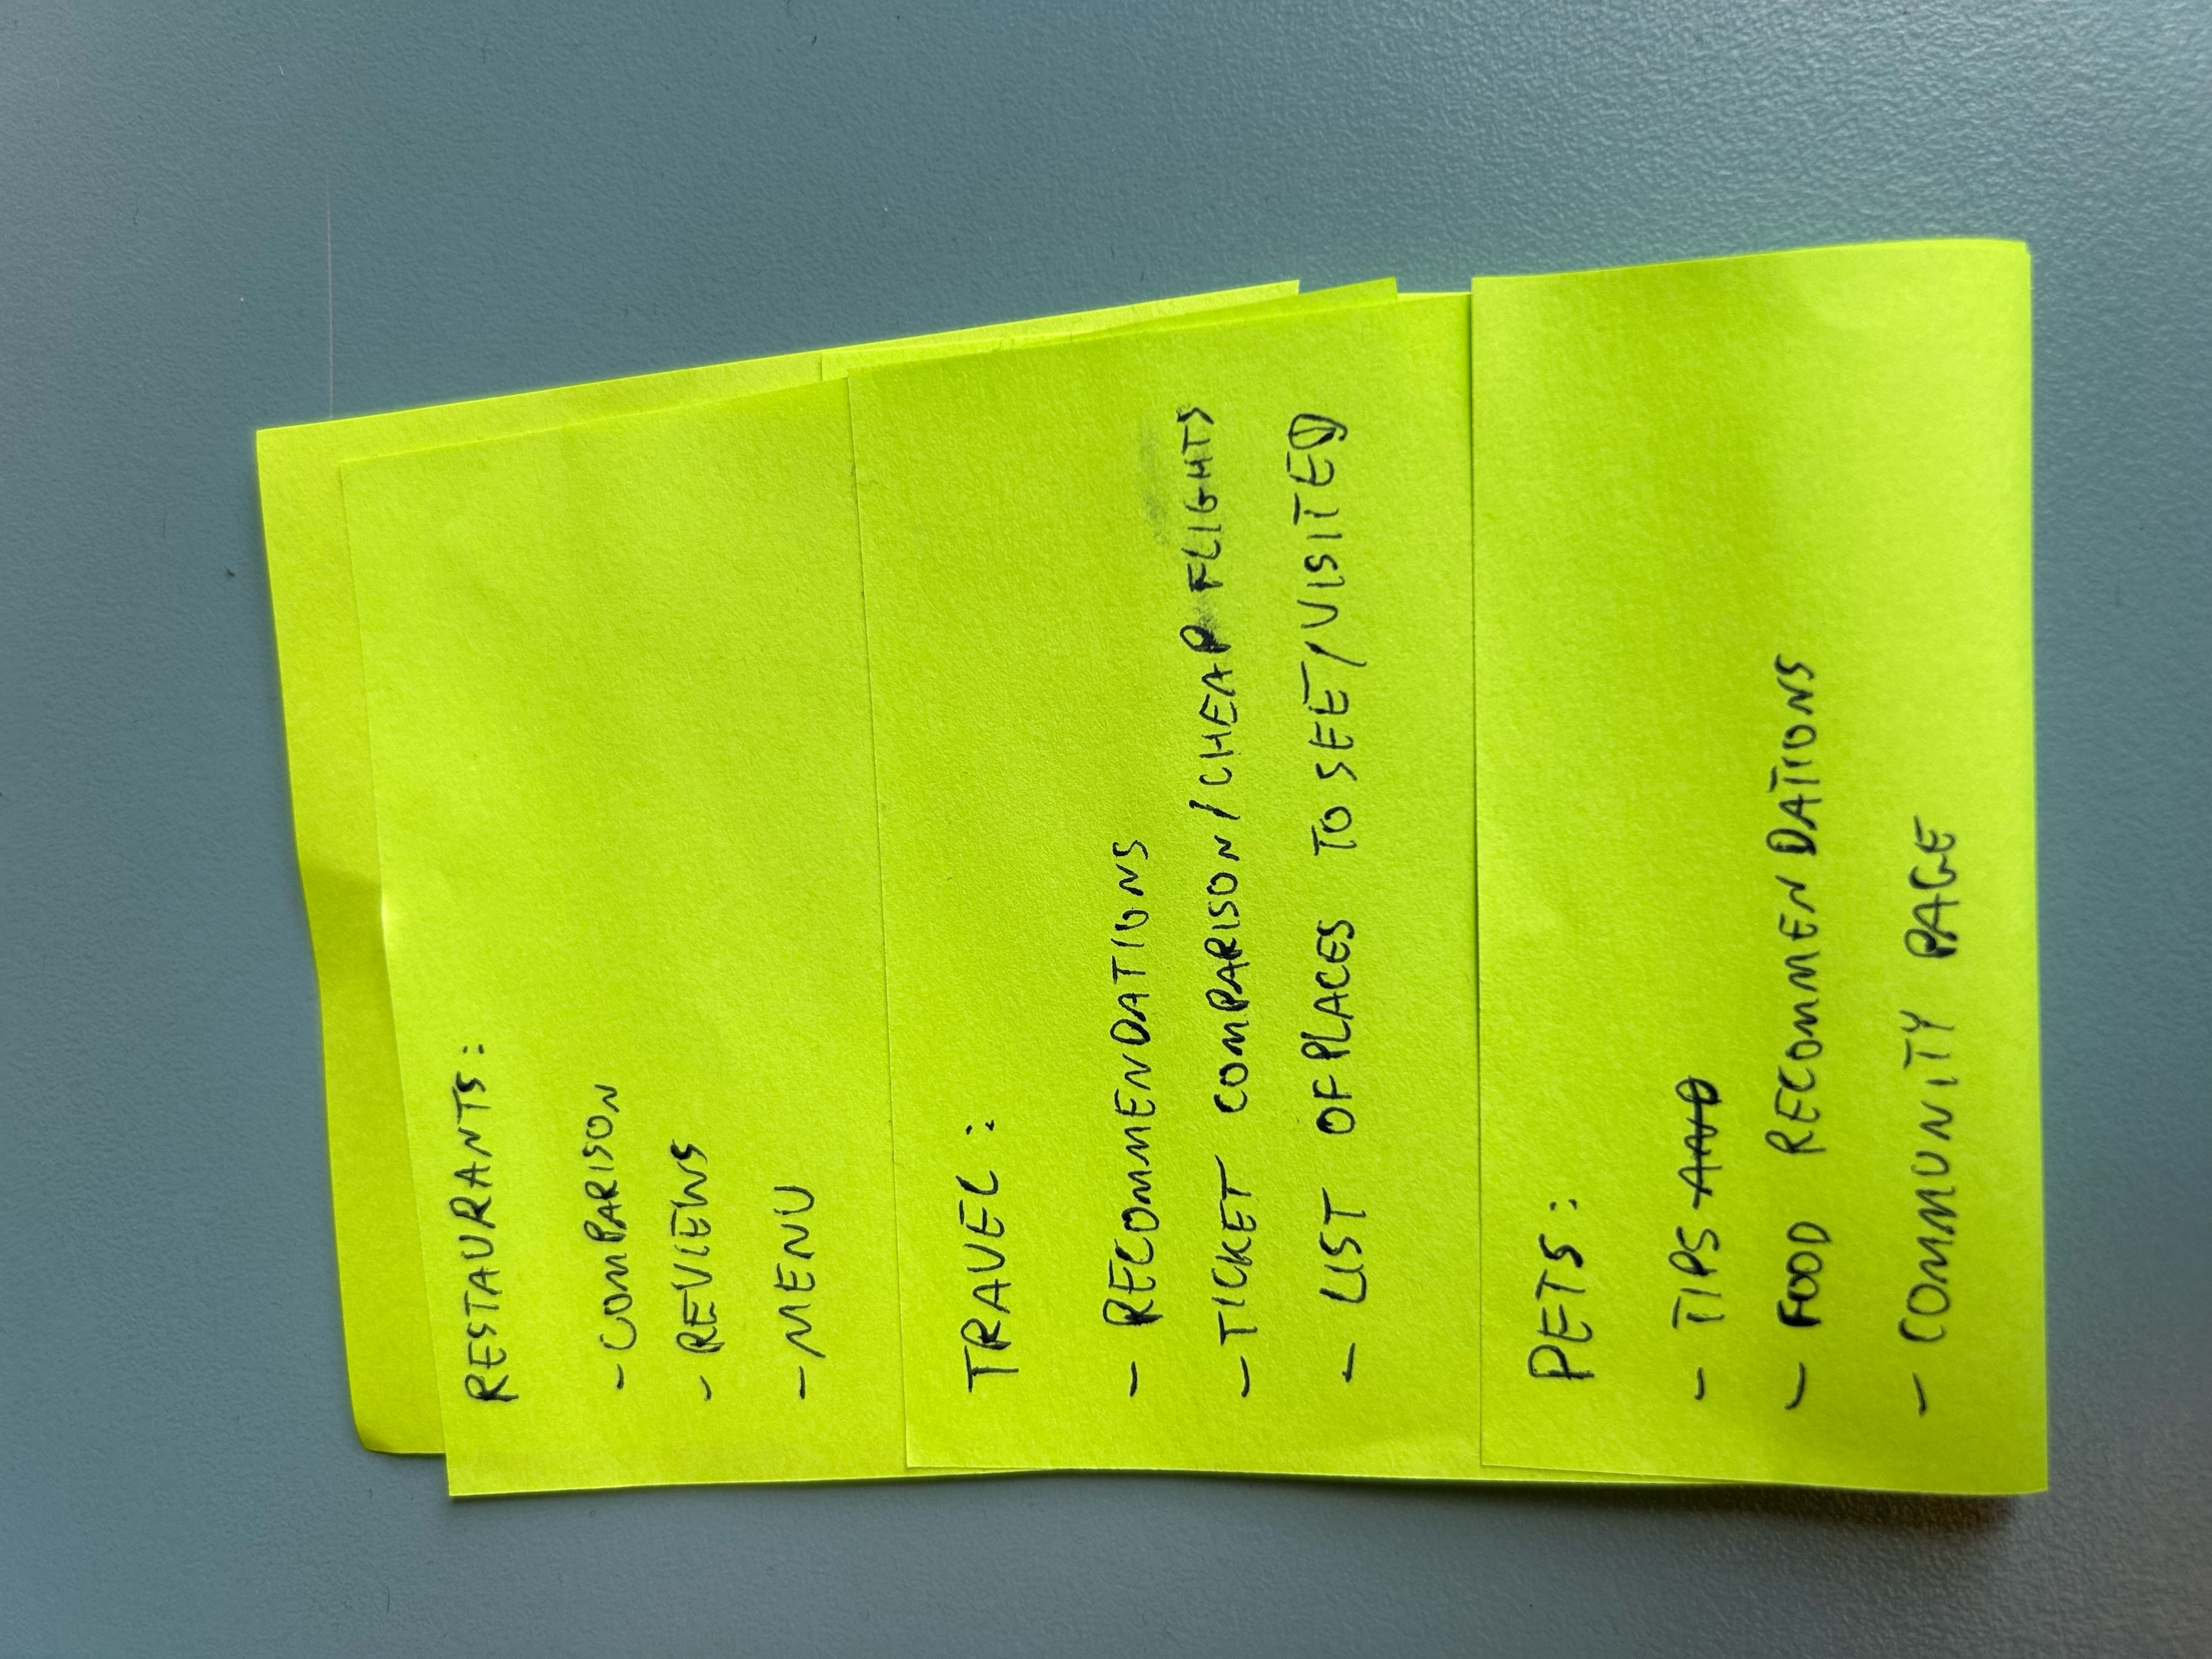 RESTAURANTS:
- COMPARISON
- REVIEWS
- MENU
TRAVEL:
- RECOMMENDATIONS
- TICKET COMPARISON/CHEAP FLIGHTS
- LIST OF PLACES TO SEE/VISITED
PETS:
- TIPS AND
- FOOD RECOMMENDATIONS
- COMMUNITY PAGE